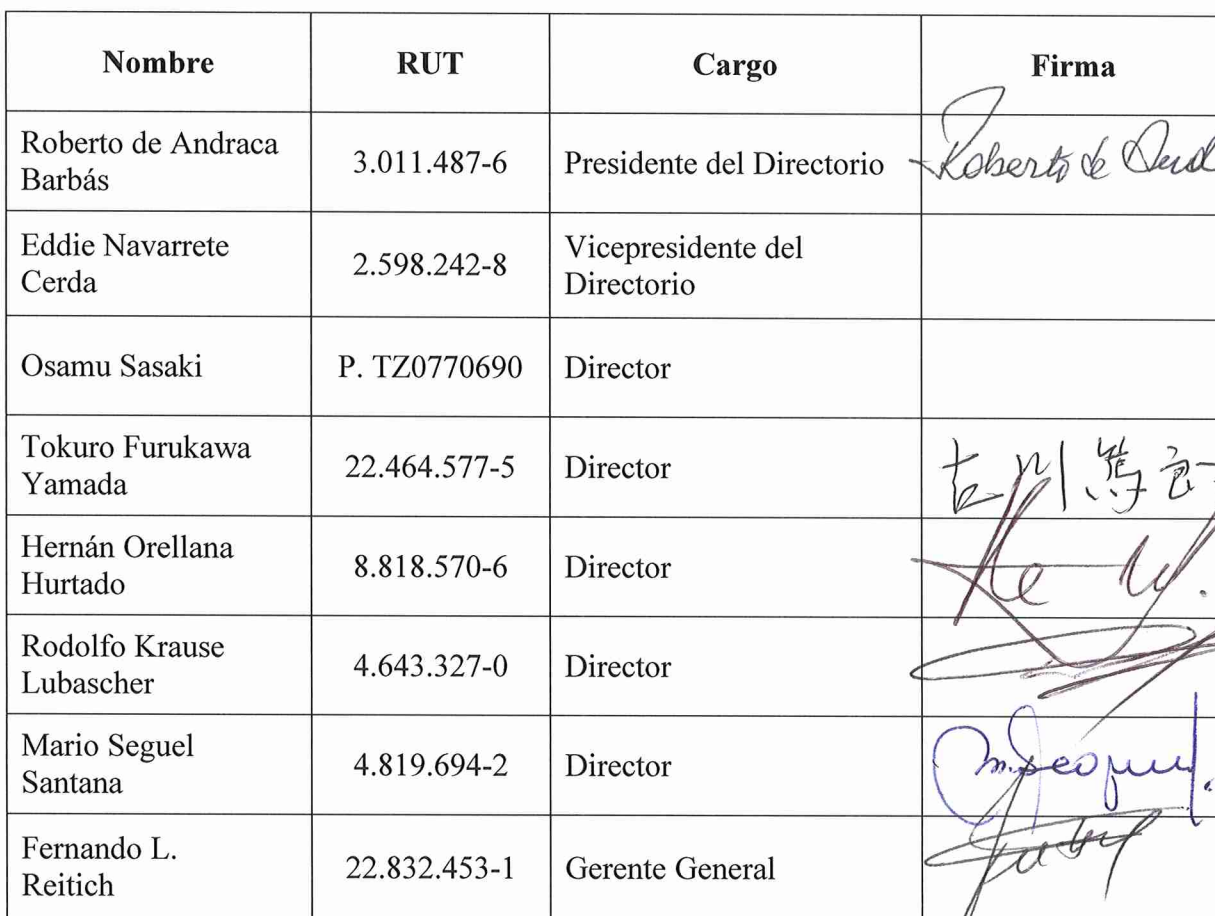 Nombre RUT Cargo Firma
Roberto de Andraca
Barbás
3.011.487-6
Presidente del Directorio
Roberto de
Eddie Navarrete
Cerda
2.598.242-8
Vicepresidente del
Directorio
Osamu Sasaki
P. TZ0770690
Director
Tokuro Furukawa
Yamada
22.464.577-5
Director
古川篤
Hernán Orellana
Hurtado
8.818.570-6
Director
Rodolfo Krause
Lubascher
4.643.327-0
Director
Mario Seguel
Santana
4.819.694-2
Director
Fernando L.
Reitich
22.832.453-1
Gerente General